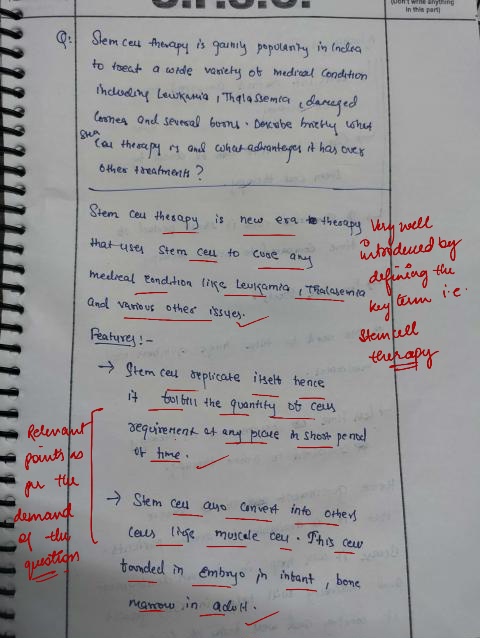 (Don't write anything
in this part)
Q: Stem cell therapy is gainly popularity in India
to treat a wide variety of medical condition
including Leukamia, Thalassemia, damaged
cornes and several burns. Describe briefly what
Stem
Cell therapy is and what advantages it has over
other treatments?
Stem cell therapy is new era therapy
that uses stem cell to cure any
medical condition like Leukamia, Thalasemia
and various other issues.
Very well
introduced by
defining the
key term i.e.
Stem cell
therapy
Features:-
→ Stem cell replicate itself hence
it fulfill the quantity of cells
requirement at any place in short period
of time.
→ Stem cell also convert into others
cells like muscle cell. This cell
founded in embryo in infant, bone
marrow in adult.
Relevant
points as
per the
demand
of the
question